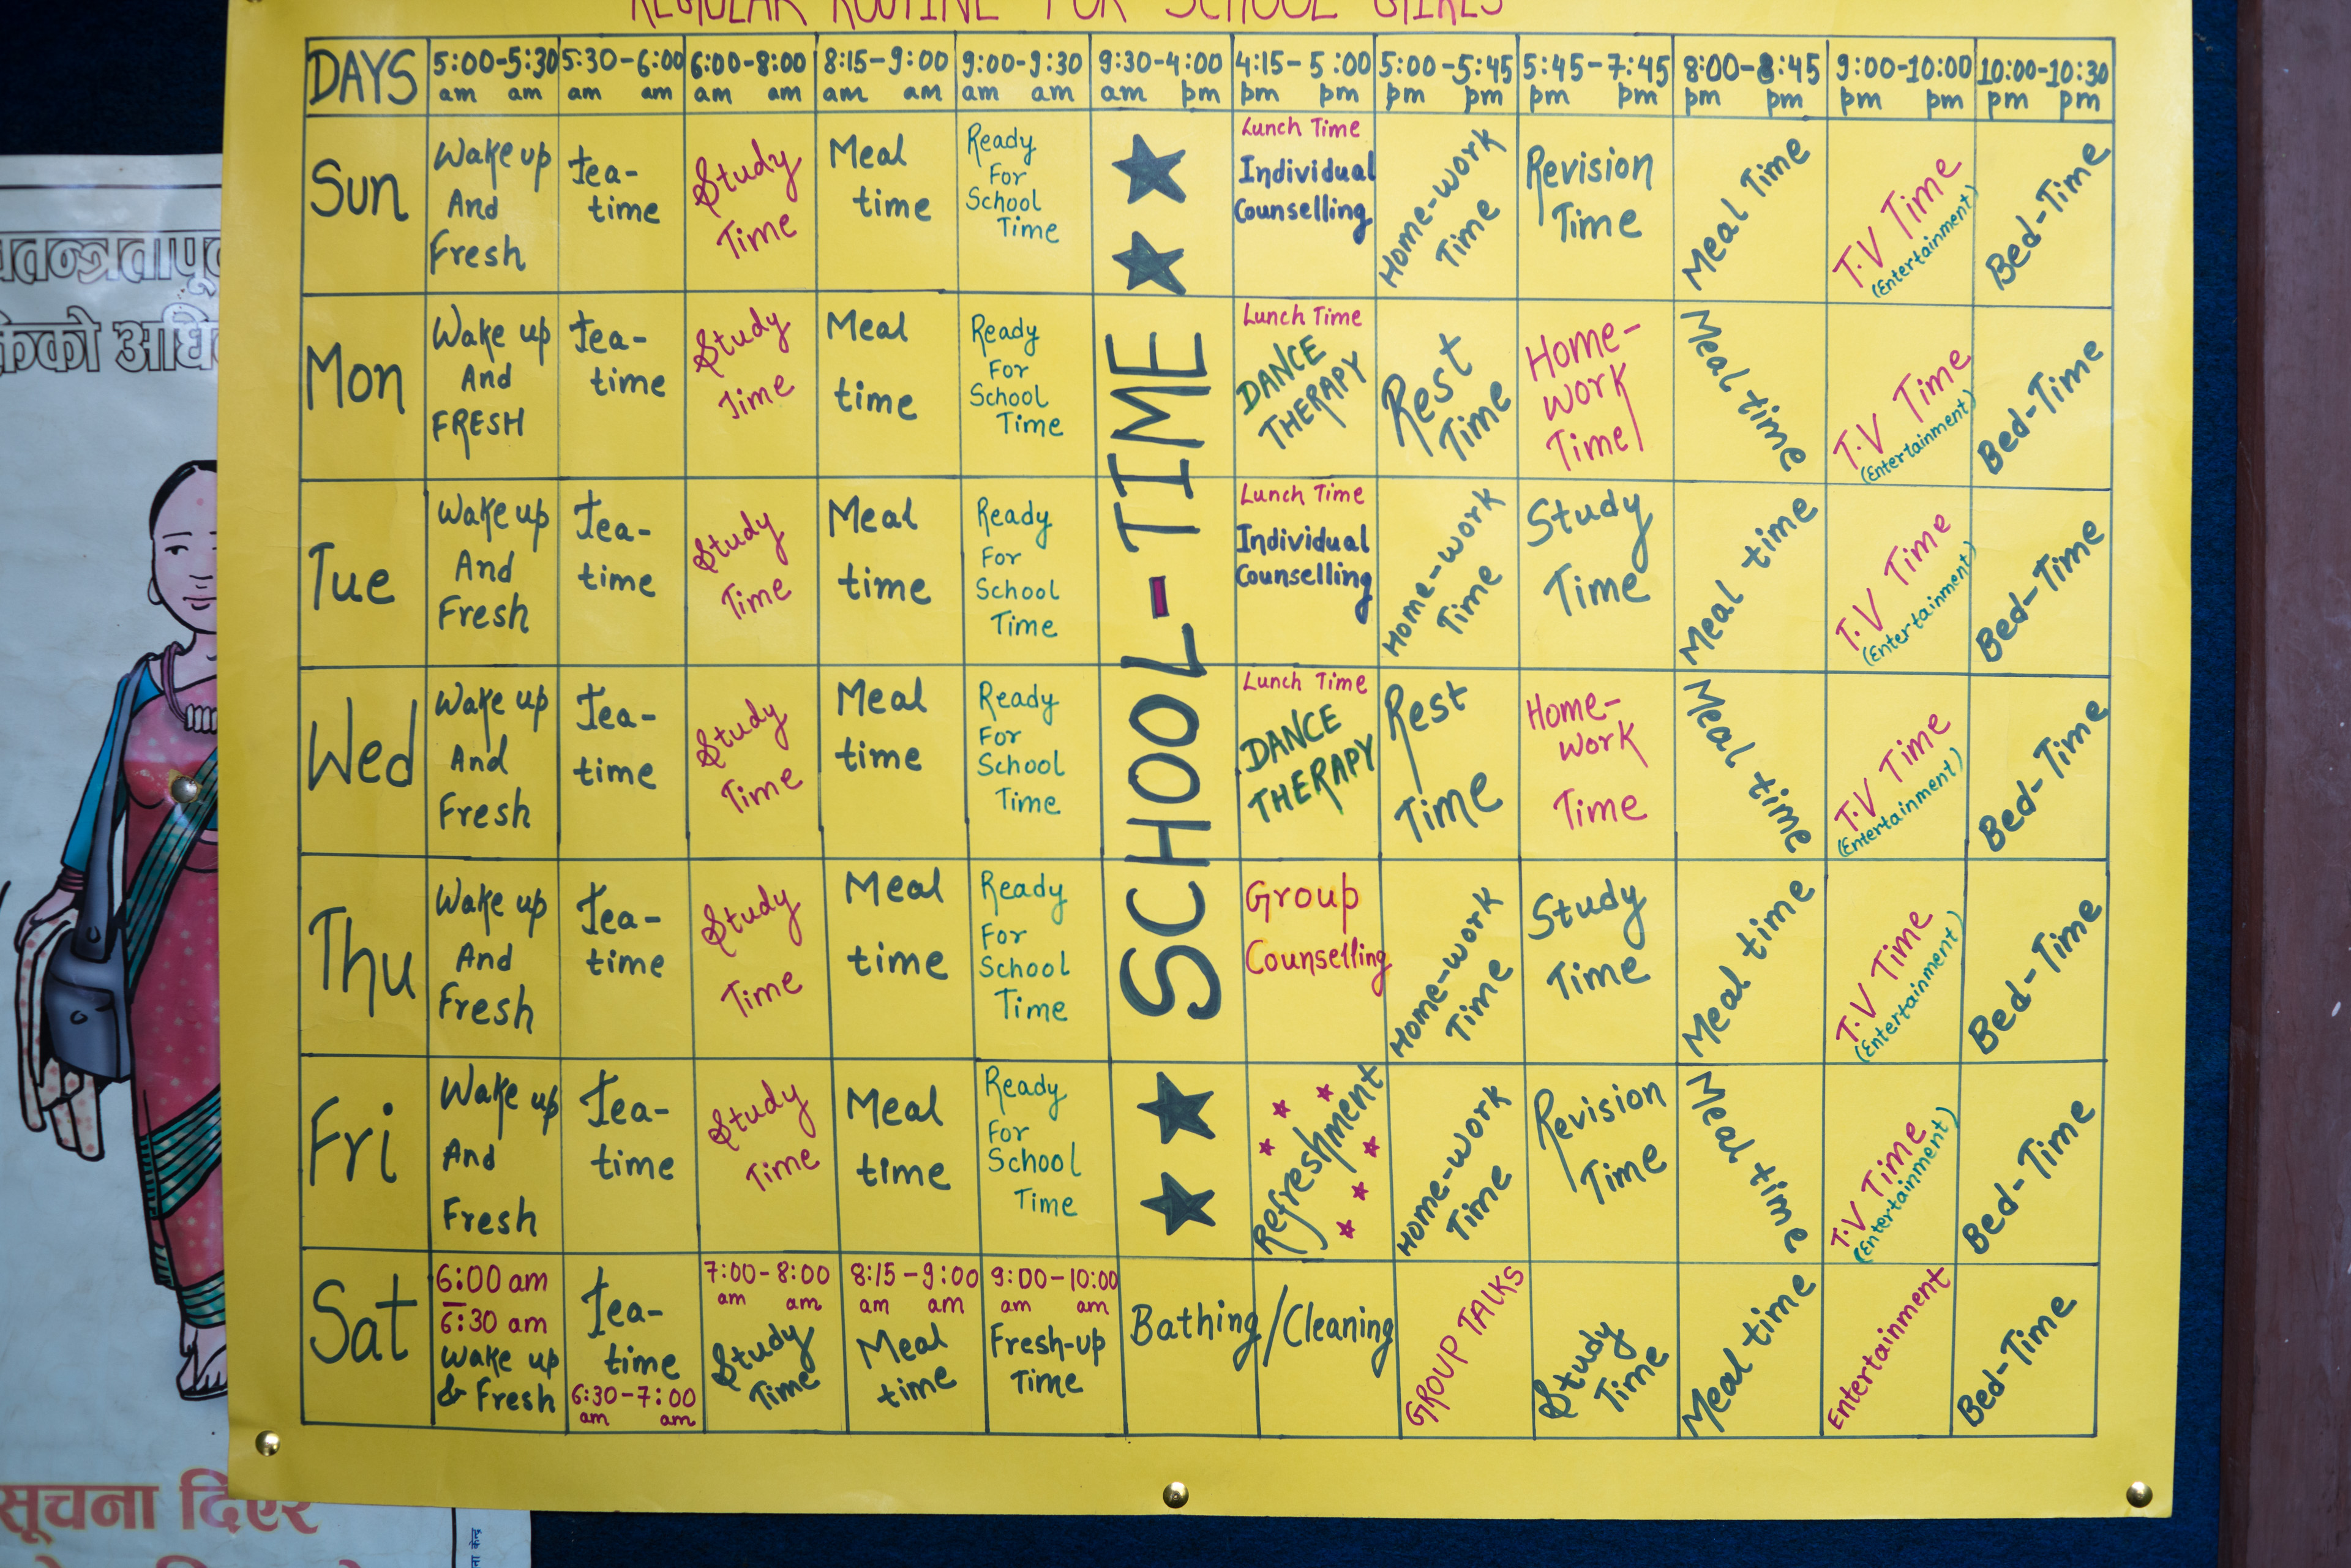 REGULAR ROUTINE FOR SCHOOL GIRLS
DAYS
5:00-5:30
am am
5:30-6:00
am am
6:00-8:00
am am
8:15-9:00
am am
9:00-9:30
am am
9:30-4:00
am pm
4:15-5:00
pm pm
5:00-5:45
pm pm
5:45-7:45
pm pm
8:00-8:45
pm pm
9:00-10:00
pm pm
10:00-10:30
pm pm
Sun
Wake up
And
Fresh
Tea-
time
Study
Time
Meal
time
Ready
For
School
Time
SCHOOL-TIME
Lunch Time
Individual
Counselling
Home-work
Time
Revision
Time
Meal Time
T.V Time
(Entertainment)
Bed-Time
Mon
Wake up
And
FRESH
Tea-
time
Study
Time
Meal
time
Ready
For
School
Time
Lunch Time
DANCE
THERAPY
Rest
Time
Home-
work
Time
Meal time
T.V Time
(Entertainment)
Bed-Time
Tue
Wake up
And
Fresh
Tea-
time
Study
Time
Meal
time
Ready
For
School
Time
Lunch Time
Individual
Counselling
Home-work
Time
Study
Time
Meal time
T.V Time
(Entertainment)
Bed-Time
Wed
Wake up
And
Fresh
Tea-
time
Study
Time
Meal
time
Ready
For
School
Time
Lunch Time
DANCE
THERAPY
Rest
Time
Home-
work
Time
Meal time
T.V Time
(Entertainment)
Bed-Time
Thu
Wake up
And
Fresh
Tea-
time
Study
Time
Meal
time
Ready
For
School
Time
Group
Counselling
Home-work
Time
Study
Time
Meal time
T.V Time
(Entertainment)
Bed-Time
Fri
Wake up
And
Fresh
Tea-
time
Study
Time
Meal
time
Ready
For
School
Time
Refreshment
Home-work
Time
Revision
Time
Meal time
T.V Time
(Entertainment)
Bed-Time
Sat
6:00 am
-
6:30 am
Wake up
& Fresh
Tea-
time
6:30-7:00
am am
7:00-8:00
am am
Study
Time
8:15-9:00
am am
Meal
time
9:00-10:00
am am
Fresh-up
Time
Bathing/Cleaning
GROUP TALKS
Study
Time
Meal time
Entertainment
Bed-Time
सूचना दिएर